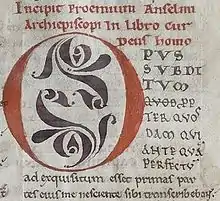 Incipit Proemium Anselmi
Archiepiscopi In Libro Cur
Deus homo
OPUS
SUBDI
TUM
QUOD, P̄P
TER QUOS
DAM QUI
ANTEQUA
PERFECTU
ad exquisitum esset primas par
tes eius me nesciente sibi transcribebant